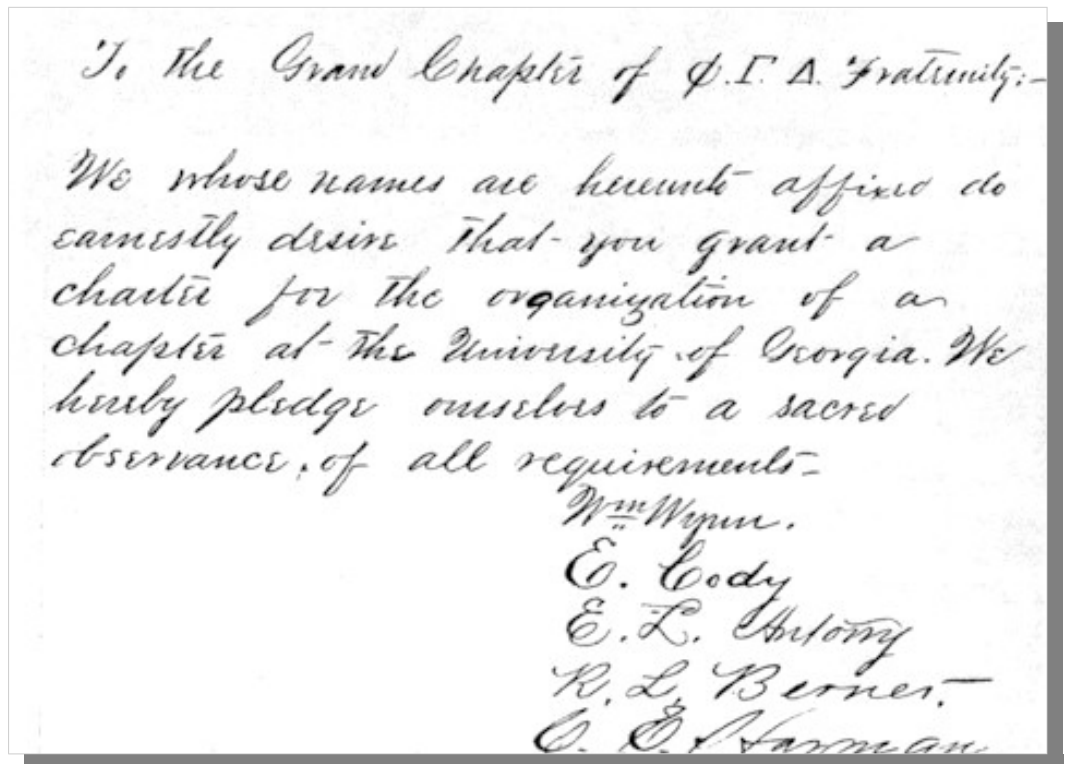 To the Grand Chapter of Φ.Γ.Δ. Fraternity:-
We whose names are hereunto affixed do
earnestly desire that you grant a
charter for the organization of a
chapter at the University of Georgia. We
hereby pledge ourselves to a sacred
observance of all requirements-
Wm Wynn.
E. Cody
E. L. Antony
R. L. Berner.
C. E. Harman